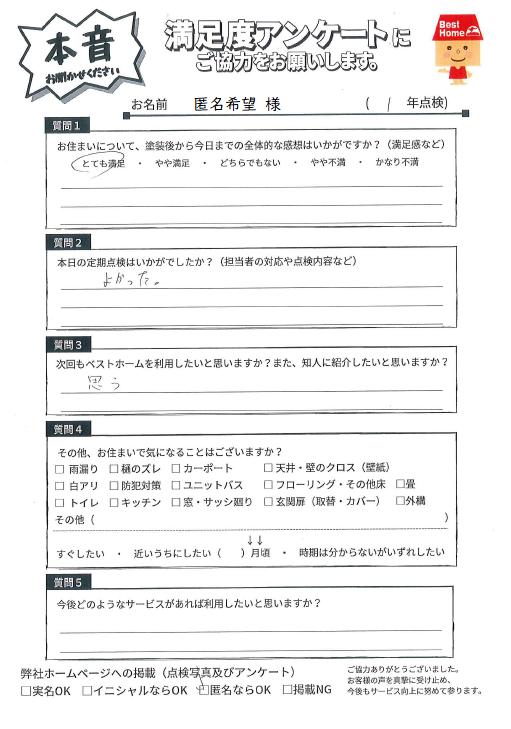 本音
お聞かせください
満足度アンケートに
ご協力をお願いします。
Best
Home
お名前 匿名希望 様 ( 1 年点検)
質問1
お住まいについて、塗装後から今日までの全体的な感想はいかがですか？（満足感など）
とても満足 ・ やや満足 ・ どちらでもない ・ やや不満 ・ かなり不満
質問2
本日の定期点検はいかがでしたか？（担当者の対応や点検内容など）
よかった。
質問3
次回もベストホームを利用したいと思いますか？また、知人に紹介したいと思いますか？
思う
質問4
その他、お住まいで気になることはございますか？
□ 雨漏り □ 樋のズレ □ カーポート □ 天井・壁のクロス（壁紙）
□ 白アリ □ 防犯対策 □ ユニットバス □ フローリング・その他床 □畳
□ トイレ □ キッチン □ 窓・サッシ廻り □ 玄関扉（取替・カバー） □外構
その他（ ）
↓↓
すぐしたい ・ 近いうちにしたい（ ）月頃 ・ 時期は分からないがいずれしたい
質問5
今後どのようなサービスがあれば利用したいと思いますか？
弊社ホームページへの掲載（点検写真及びアンケート）
□実名OK □イニシャルならOK □匿名ならOK □掲載NG
ご協力ありがとうございました。
お客様の声を真摯に受け止め、
今後もサービス向上に努めて参ります。